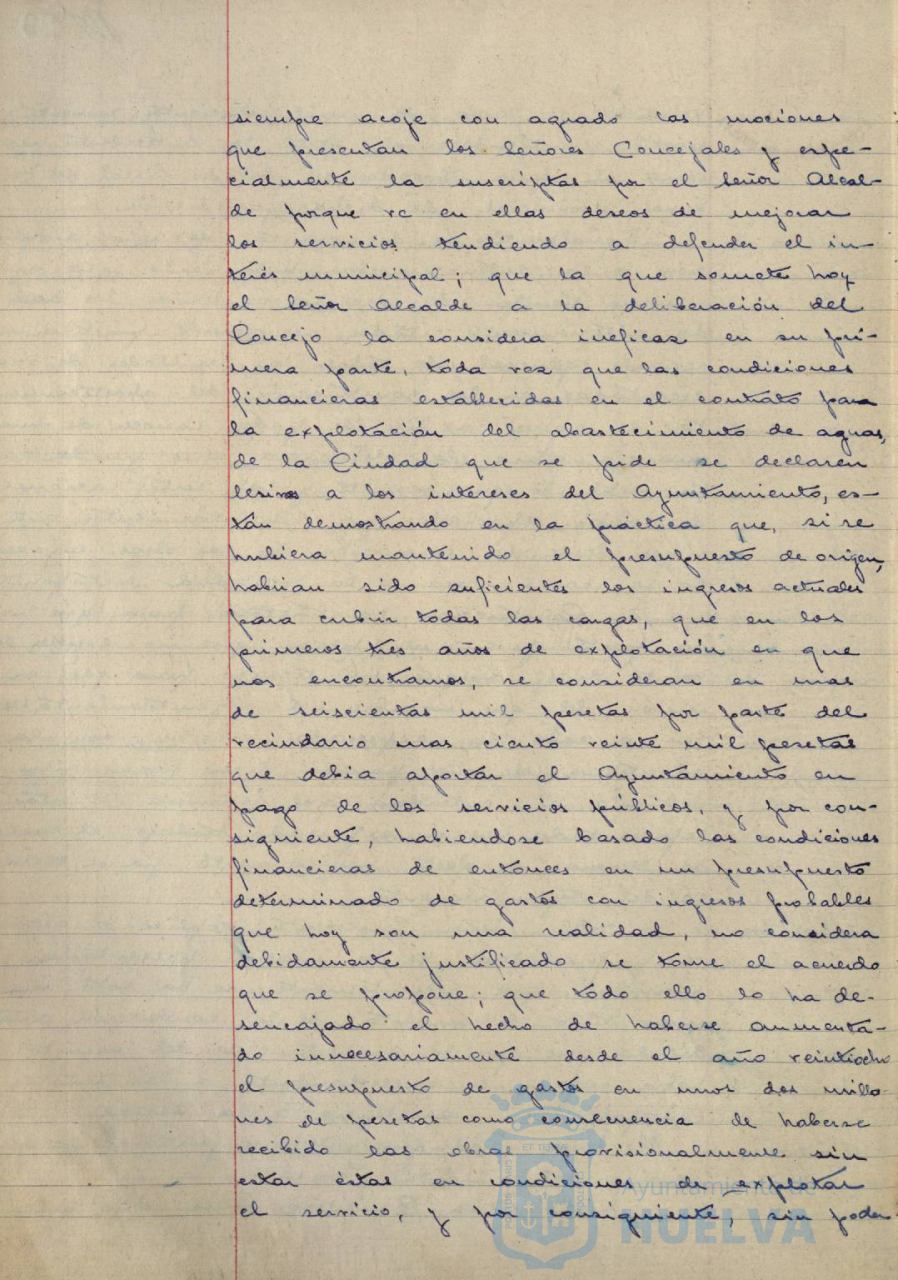 siempre acoje con agrado las mociones
que presentan los Señores Concejales y espe-
cialmente la suscriptas por el Señor Alcal-
de porque ve en ellas deseos de mejorar
los servicios tendiendo a defender el in-
terés municipal; que la que somete hoy
el Señor Alcalde a la deliberación del
Concejo la considera ineficaz en su pri-
mera parte, toda vez que las condiciones
financieras establecidas en el contrato para
la explotación del abastecimiento de aguas,
de la Ciudad que se pide se declaren
lesivas a los intereses del Ayuntamiento, es-
tán demostrando en la práctica que, si se
hubiera mantenido el presupuesto de origen,
habrian sido suficientes los ingresos actuales
para cubrir todas las cargas, que en los
primeros tres años de explotación en que
nos encontramos, se consideran en mas
de seiscientas mil pesetas por parte del
vecindario mas ciento veinte mil pesetas
que debia aportar el Ayuntamiento en
pago de los servicios públicos, y, por con-
siguiente, habiendose basado las condiciones
financieras de entonces en un presupuesto
determinado de gastos con ingresos probables
que hoy son una realidad, no considera
debidamente justificado se tome el acuerdo
que se propone; que todo ello lo ha de-
sencajado el hecho de haberse aumenta-
do innecesariamente desde el año veintiocho
el presupuesto de gastos en unos dos millo-
nes de pesetas como consecuencia de haberse
recibido las obras provisionalmente sin
estar éstas en condiciones de explotar
el servicio, y por consiguiente, sin poder
Ayuntamiento de
HUELVA